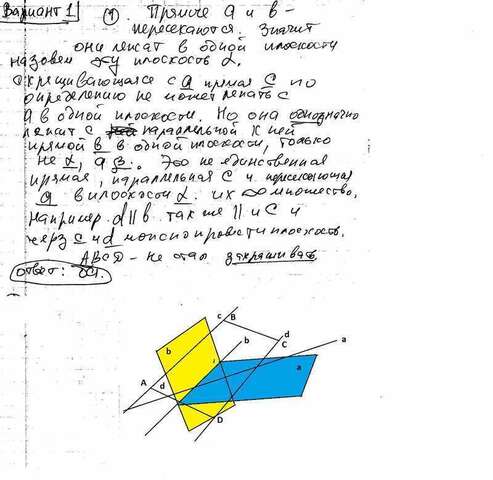 Вариант 1 ① Прямые a и b -
пересекаются. Значит
они лежат в одной плоскости
назовем эту плоскость α.
Скрещивающаяся с a прямая c по
определению не может лежать с
a в одной плоскости. Но она однозначно
лежит с параллельной к ней
прямой b в одной плоскости, только
не α, а β. Это не единственная
прямая, параллельная c и пересекающая
a в плоскости α. их ∞ множество.
Например d || b также || и c и
через c и d можно провести плоскость.
ABCD - не стал закрашивать.
Ответ: ∞.
c B
b b d C a
A d a
D